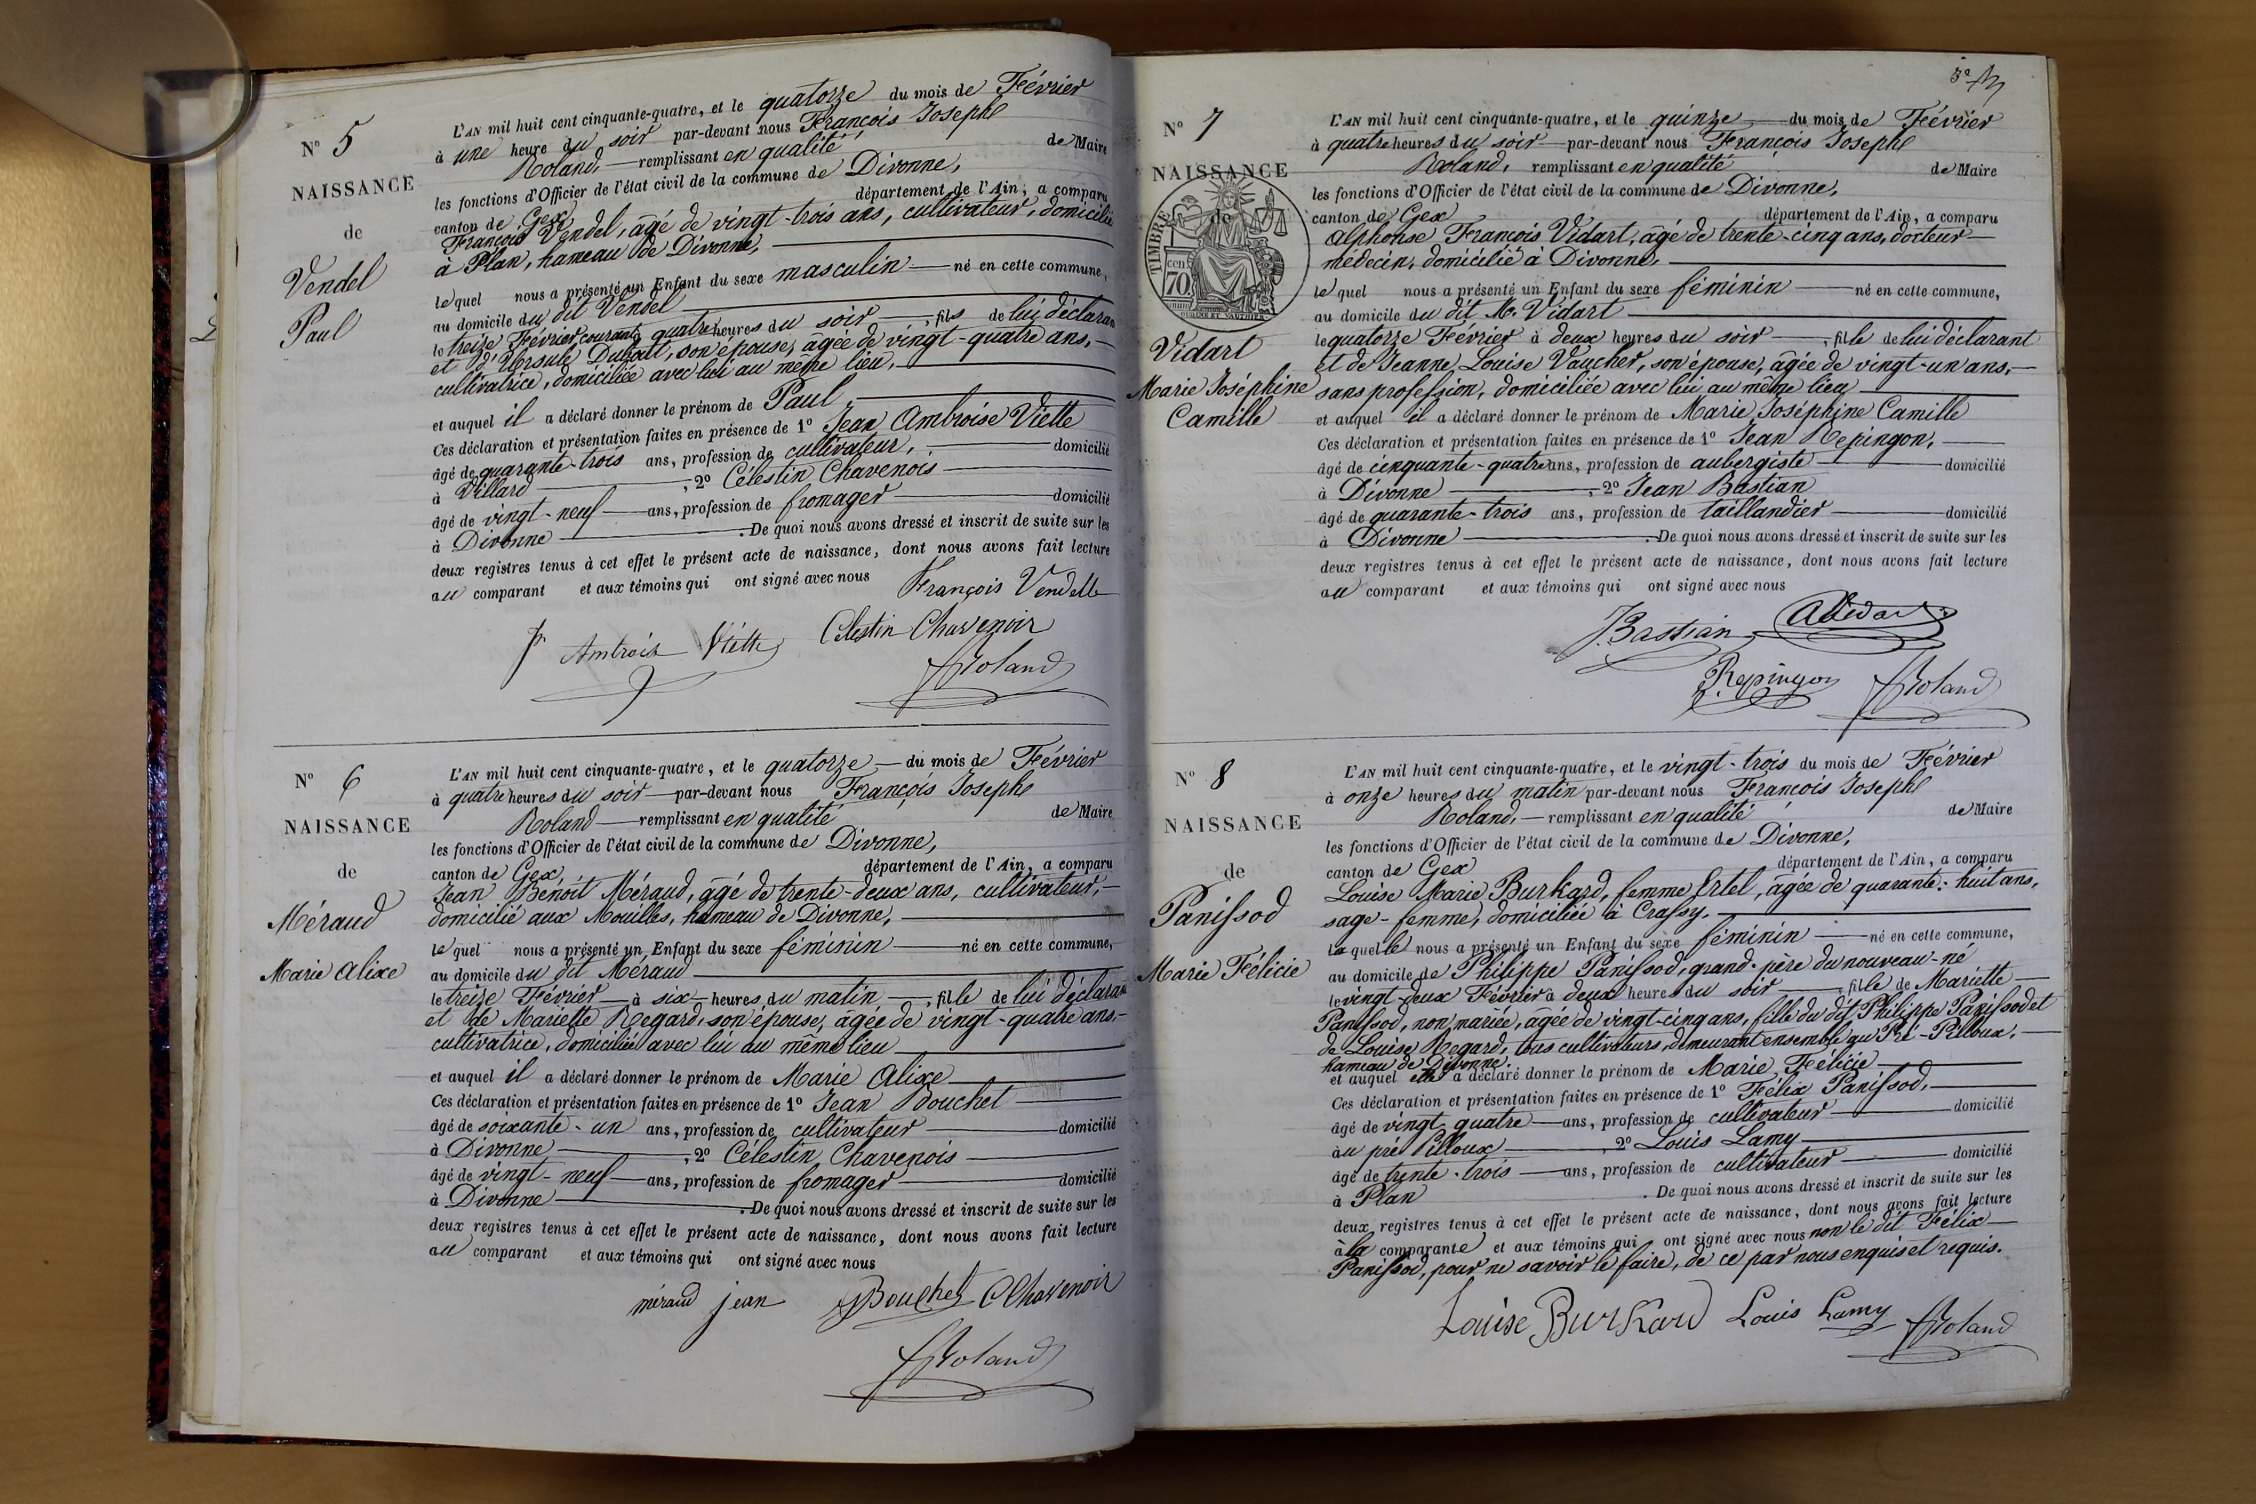 N° 5
NAISSANCE
de
Vendel
Paul
L'AN mil huit cent cinquante-quatre, et le quatorze du mois de Février
à une heure du soir par-devant nous François Joseph
Roland, remplissant en qualité de Maire
les fonctions d'Officier de l'état civil de la commune de Divonne,
canton de Gex département de l'Ain, a comparu
François Vendel, âgé de vingt-trois ans, cultivateur, domicilié
à Plan, hameau de Divonne,
lequel nous a présenté un Enfant du sexe masculin né en cette commune,
au domicile du dit Vendel
le treize Février courant, quatre heures du soir, fils de lui déclarant
et d'Ursule Duboit, son épouse, âgée de vingt-quatre ans,
cultivatrice, domiciliée avec lui au même lieu,
et auquel il a déclaré donner le prénom de Paul
Ces déclaration et présentation faites en présence de 1° Jean Ambroise Viette
âgé de quarante-trois ans, profession de cultivateur, domicilié
à Villard, 2° Célestin Chavenois
âgé de vingt-neuf ans, profession de fromager domicilié
à Divonne. De quoi nous avons dressé et inscrit de suite sur les
deux registres tenus à cet effet le présent acte de naissance, dont nous avons fait lecture
au comparant et aux témoins qui ont signé avec nous
François Vendelle
Ambrois Viette Célestin Chavenoir
Roland
N° 6
NAISSANCE
de
Méraud
Marie Alixe
L'AN mil huit cent cinquante-quatre, et le quatorze du mois de Février
à quatre heures du soir par-devant nous François Joseph
Roland remplissant en qualité de Maire
les fonctions d'Officier de l'état civil de la commune de Divonne,
canton de Gex, département de l'Ain, a comparu
Jean Bénoit Méraud, âgé de trente-deux ans, cultivateur,
domicilié aux Mouilles, hameau de Divonne,
lequel nous a présenté un Enfant du sexe féminin né en cette commune,
au domicile du dit Méraud
le treize Février à six heures du matin, fille de lui déclarant
et de Mariette Regard, son épouse, âgée de vingt-quatre ans,
cultivatrice, domiciliée avec lui au même lieu
et auquel il a déclaré donner le prénom de Marie Alixe
Ces déclaration et présentation faites en présence de 1° Jean Bouchet
âgé de soixante-un ans, profession de cultivateur domicilié
à Divonne, 2° Célestin Chavenois
âgé de vingt-neuf ans, profession de fromager domicilié
à Divonne. De quoi nous avons dressé et inscrit de suite sur les
deux registres tenus à cet effet le présent acte de naissance, dont nous avons fait lecture
au comparant et aux témoins qui ont signé avec nous
méraud jean Bouchet C Chavenoir
Roland
N° 7
NAISSANCE
de
TIMBRE
70
Vidart
Marie Joséphine
Camille
L'AN mil huit cent cinquante-quatre, et le quinze du mois de Février
à quatre heures du soir par-devant nous François Joseph
Roland, remplissant en qualité de Maire
les fonctions d'Officier de l'état civil de la commune de Divonne,
canton de Gex département de l'Ain, a comparu
Alphonse François Vidart, âgé de trente-cinq ans, docteur
médecin, domicilié à Divonne,
lequel nous a présenté un Enfant du sexe féminin né en cette commune,
au domicile du dit Mr. Vidart
le quatorze Février à deux heures du soir, fille de lui déclarant
et de Jeanne Louise Vaucher, son épouse, âgée de vingt-un ans,
sans profession, domiciliée avec lui au même lieu
et auquel il a déclaré donner le prénom de Marie Joséphine Camille
Ces déclaration et présentation faites en présence de 1° Jean Repingon,
âgé de cinquante-quatre ans, profession de aubergiste domicilié
à Divonne, 2° Jean Bastian
âgé de quarante-trois ans, profession de taillandier domicilié
à Divonne. De quoi nous avons dressé et inscrit de suite sur les
deux registres tenus à cet effet le présent acte de naissance, dont nous avons fait lecture
au comparant et aux témoins qui ont signé avec nous
J. Bastian AVidart
Repingon Roland
N° 8
NAISSANCE
de
Panissod
Marie Félicie
L'AN mil huit cent cinquante-quatre, et le vingt-trois du mois de Février
à onze heures du matin par-devant nous François Joseph
Roland, remplissant en qualité de Maire
les fonctions d'Officier de l'état civil de la commune de Divonne,
canton de Gex département de l'Ain, a comparu
Louise Marie Burkard, femme Ertel, âgée de quarante-huit ans,
sage-femme, domiciliée à Crassy,
laquelle nous a présenté un Enfant du sexe féminin né en cette commune,
au domicile de Philippe Panissod, grand-père du nouveau-né
le vingt-deux Février à deux heures du soir, fille de Mariette
Panissod, non mariée, âgée de vingt-cinq ans, fille du dit Philippe Panissod et
de Louise Regard, tous cultivateurs, demeurant ensemble au Pré-Pilloux,
hameau de Divonne.
et auquel elle a déclaré donner le prénom de Marie Félicie
Ces déclaration et présentation faites en présence de 1° Félix Panissod,
âgé de vingt quatre ans, profession de cultivateur domicilié
au pré Pilloux, 2° Louis Lamy
âgé de trente-trois ans, profession de cultivateur domicilié
à Plan. De quoi nous avons dressé et inscrit de suite sur les
deux registres tenus à cet effet le présent acte de naissance, dont nous avons fait lecture
à la comparante et aux témoins qui ont signé avec nous non le dit Félix
Panissod, pour ne savoir le faire, de ce par nous enquis et requis.
Louise Burkard Louis Lamy Roland